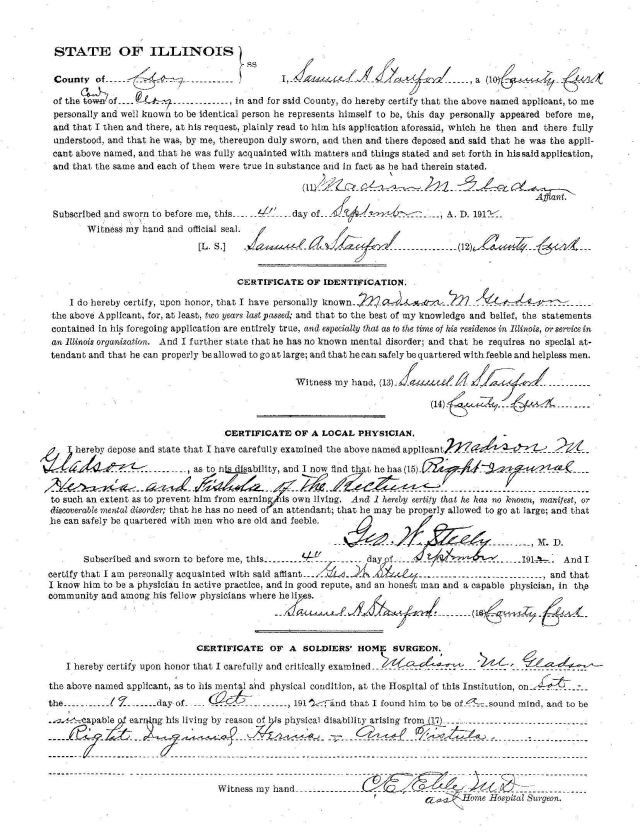 STATE OF ILLINOIS } ss
County of Clay I, Samuel A Stanford, a (10) County Clerk
of the town of Clay, in and for said County, do hereby certify that the above named applicant, to me
personally and well known to be identical person he represents himself to be, this day personally appeared before me,
and that I then and there, at his request, plainly read to him his application aforesaid, which he then and there fully
understood, and that he was, by me, thereupon duly sworn, and then and there deposed and said that he was the appli-
cant above named, and that he was fully acquainted with matters and things stated and set forth in his said application,
and that the same and each of them were true in substance and in fact as he had therein stated.
(11) Madison M Gladson
Affiant.
Subscribed and sworn to before me, this 4" day of September, A. D. 1912
Witness my hand and official seal.
[L. S.] Samuel A. Stanford (12), County Clerk
CERTIFICATE OF IDENTIFICATION.
I do hereby certify, upon honor, that I have personally known Madison M Gladson
the above Applicant, for, at least, two years last passed; and that to the best of my knowledge and belief, the statements
contained in his foregoing application are entirely true, and especially that as to the time of his residence in Illinois, or service in
an Illinois organization. And I further state that he has no known mental disorder; and that he requires no special at-
tendant and that he can properly be allowed to go at large; and that he can safely be quartered with feeble and helpless men.
Witness my hand, (13) Samuel A Stanford
(14) County Clerk
CERTIFICATE OF A LOCAL PHYSICIAN.
I hereby depose and state that I have carefully examined the above named applicant Madison M
Gladson, as to his disability, and I now find that he has (15) Right Ingunal
Hernia and Fishola of the Rectum
to such an extent as to prevent him from earning his own living. And I hereby certify that he has no known, manifest, or
discoverable mental disorder; that he has no need of an attendant; that he may be properly allowed to go at large; and that
he can safely be quartered with men who are old and feeble.
Geo. W. Steely, M. D.
Subscribed and sworn to before me, this 4" day of September 1912. And I
certify that I am personally acquainted with said affiant Geo W Steely, and that
I know him to be a physician in active practice, and in good repute, and an honest man and a capable physician, in the
community and among his fellow physicians where he lives.
Samuel A Stanford. (16) County Clerk
CERTIFICATE OF A SOLDIERS' HOME SURGEON.
I hereby certify upon honor that I carefully and critically examined Madison M. Gladson
the above named applicant, as to his mental and physical condition, at the Hospital of this Institution, on Sat
the 19 day of Oct, 1912, and that I found him to be of a sound mind, and to be
in capable of earning his living by reason of his physical disability arising from (17)
Right Inguinal Hernia - Anal Fistula
Witness my hand
asst Home Hospital Surgeon.